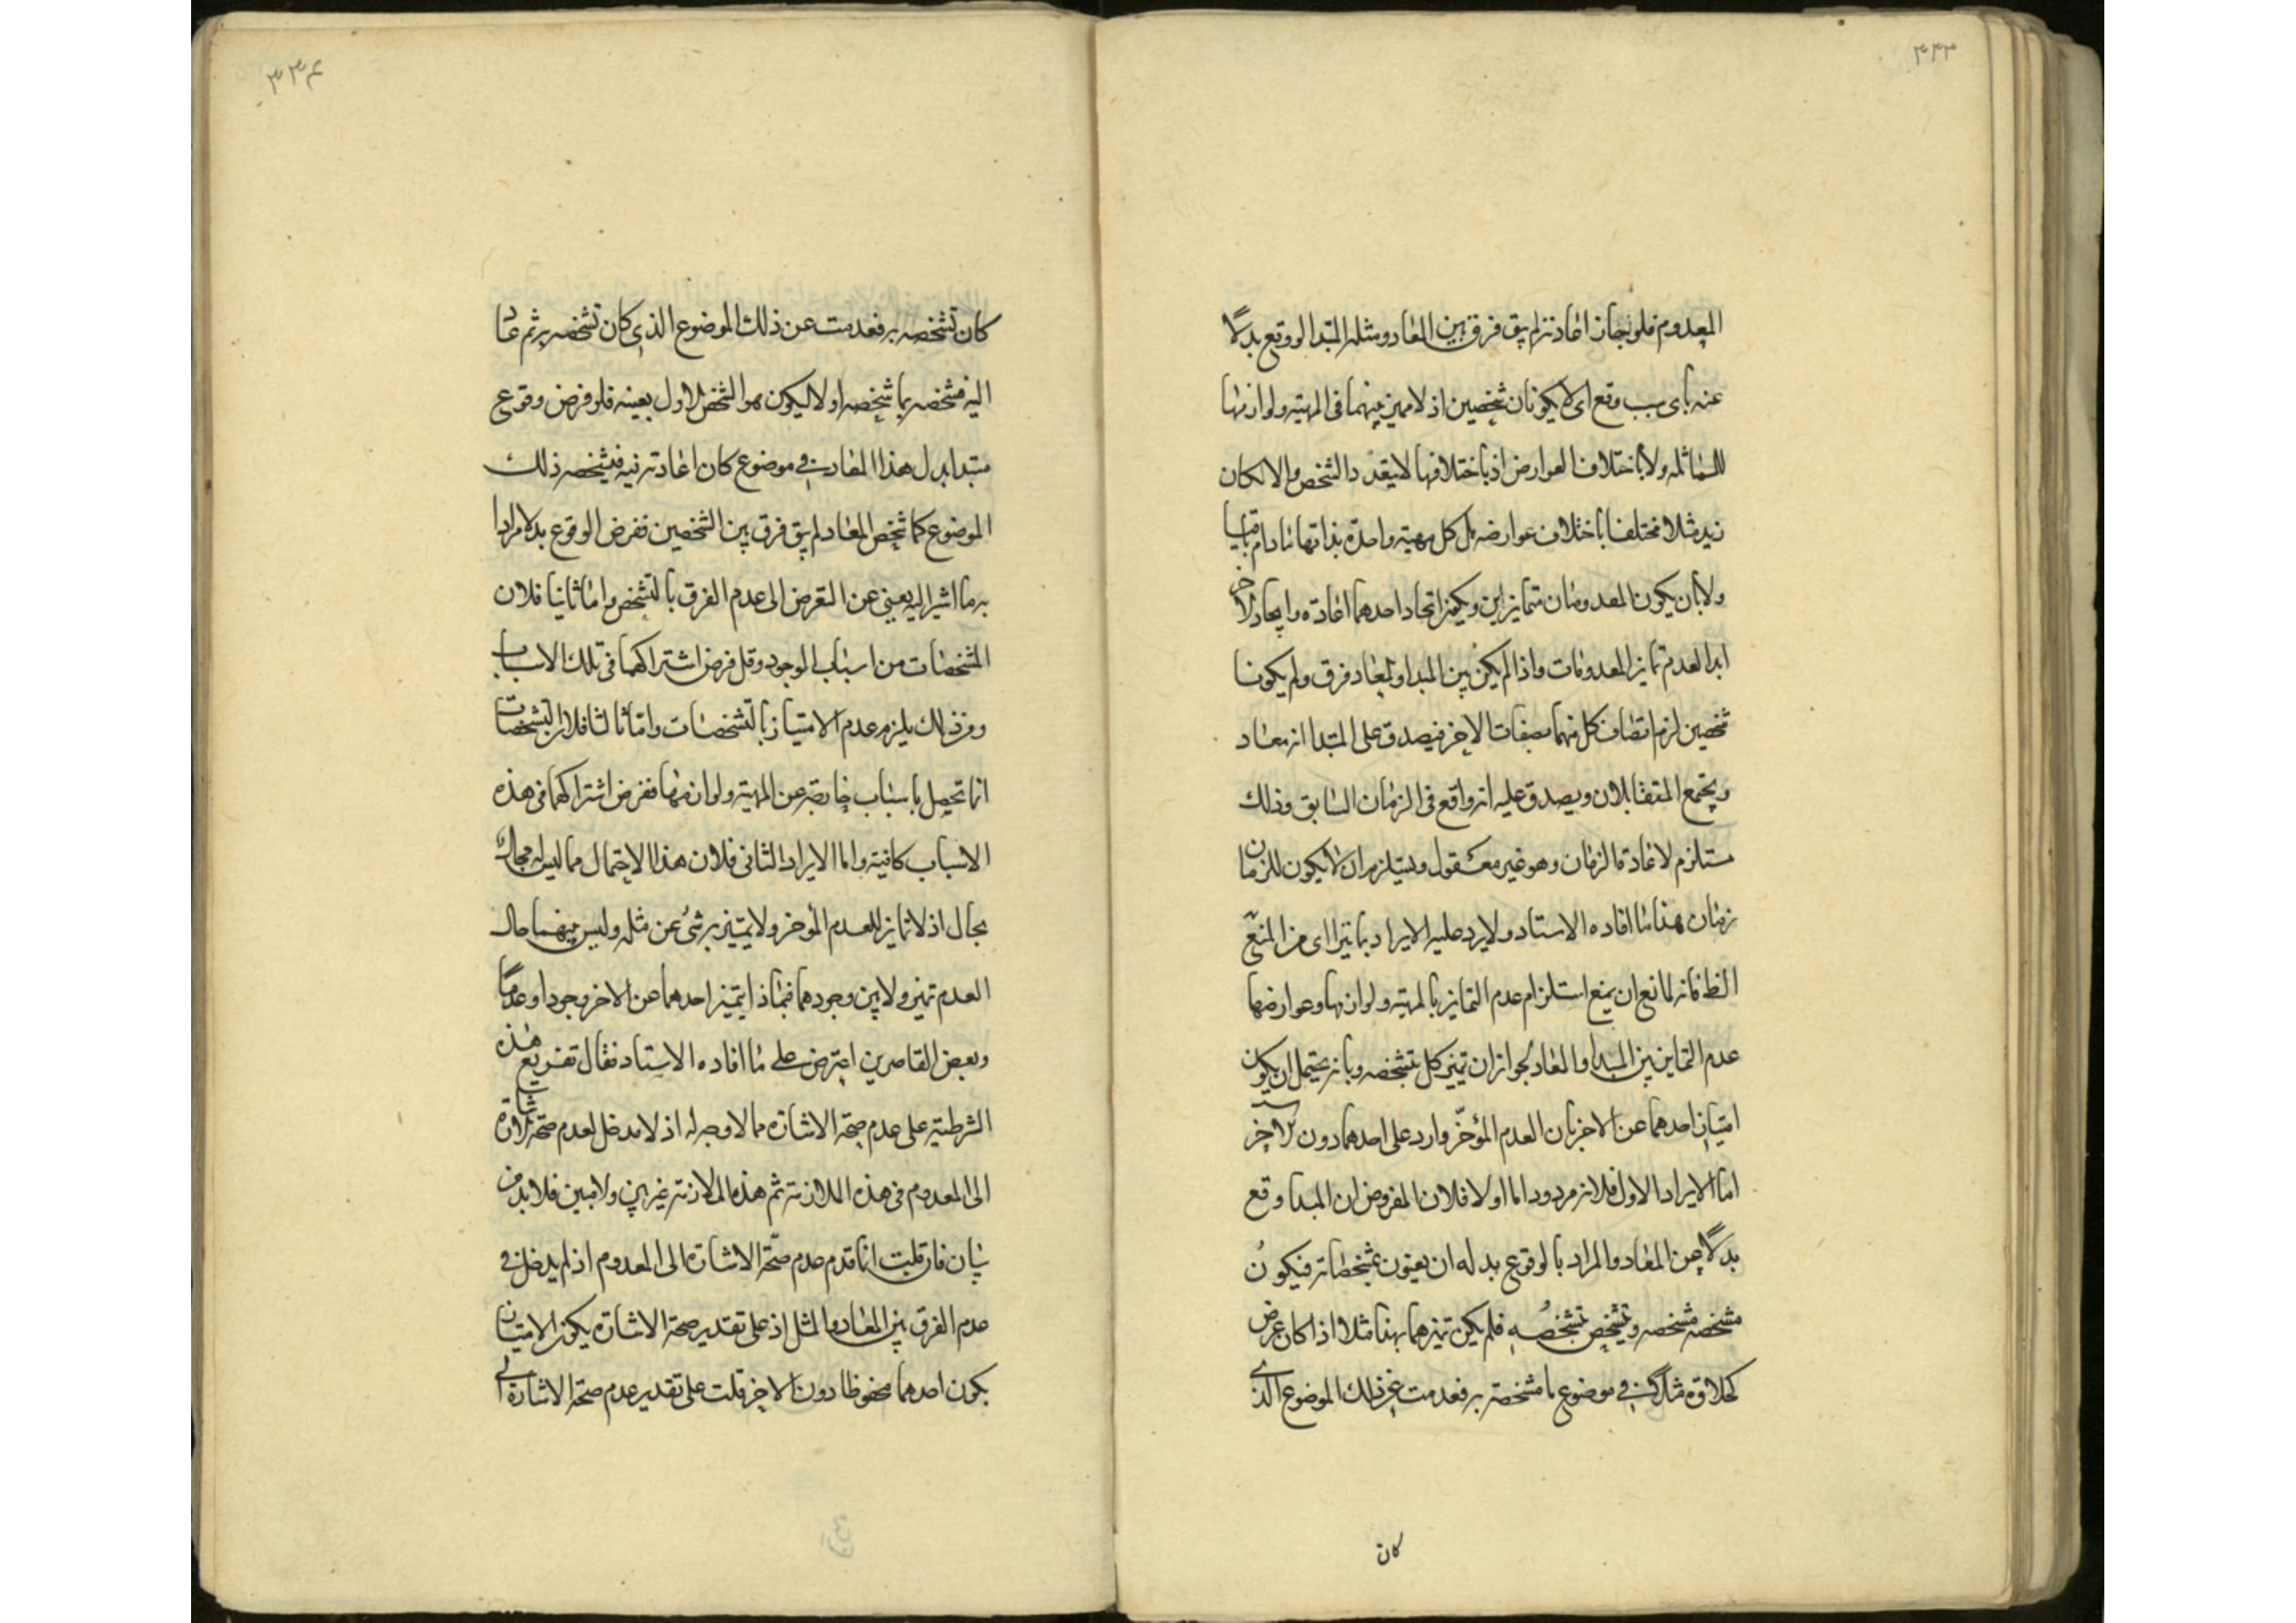 ۳۳۳
المعدوم فلو جاز اعادته لم يبق فرق بين المعاد ومثله المبتدا لو وقع بدلًا
عنه بای سبب وقع ای لا يكونان شخصين اذ لا مميز بينهما فی المهية ولوازمها
للمماثلة ولا باختلاف العوارض اذ باختلافها لا يتعدد الشخص والا لكان
زيد مثلا مختلفا باختلاف عوارضه بل كل مهية واحدة بذاتها مادام باقيا
ولا بان يكون المعدومان متمايزين ويكون اتحاد احدهما اعادة وايجاد الاخر
ابدا لعدم تمايز المعدومات واذا لم يكن بين المبدا والمعاد فرق ولم يكونا
شخصين لزم اتصاف كل منهما بصفات الاخر فيصدق على المبتدا انه معاد
ويجتمع المتقابلان ويصدق عليه انه واقع فی الزمان السابق وذلك
مستلزم لاعادة الزمان وهو غير معقول ويستلزم ان يكون للزمان
زمان هذا ما افاده الاستاد ولا يرد عليه الايراد بما يترااى من المنع
الظ فانه لمانع ان يمنع استلزام عدم التمايز بالمهية ولوازمها وعوارضها
عدم التمايز بين المبدا والمعاد لجواز ان تميز كل بتشخصه وبانه يحتمل ان يكون
امتياز احدهما عن الاخر بان العدم المؤخّر وارد على احدهما دون الاخر
اما الايراد الاول فلانه مردود اما اولا فلان المفروض ان المبدا وقع
بدلًا عن المعاد والمراد بالوقوع بدله ان يعنون بمشخصاته فيكون
مشخصه مشخصه وتشخص تشخصه فلم يكن تميزهما بهذا مثلا اذا كان عرض
كحلاوة مثلا فی موضوع ما مشخصة به فعدمت عن ذلك الموضوع الذی
كان
۳۳۴
كان تشخصه به فعدمت عن ذلك الموضوع الذی كان تشخصه به ثم عاد
اليه فشخصه بما شخصه اولا ليكون هو الشخص الاول بعينه فلو فرض وقوع
مبتدا بدل هذا المعاد فی موضوع كان اعادته فيه فيشخصه ذلك
الموضوع كما شخص المعاد لم يبق فرق بين الشخصين ففرض الوقوع بدلا مرادا
به ما اشير اليه يعنی عن التعرض الى عدم الفرق بالتشخص واما ثانيا فلان
المشخصات من اسباب الوجود وقد فرض اشتراكهما فی تلك الاسباب
ومن ذلك يلزم عدم الامتياز بالتشخصات واما ثالثا فلان التشخصات
انما تحصل باسباب خارجة عن المهية ولوازمها ففرض اشتراكهما فی هذه
الاسباب كافية واما الايراد الثانی فلان هذا الاحتمال مما ليس له مجال
بحال اذ لا تمايز للعدم المؤخر ولا يتميز به شئ عن مثله وليس بينهما حال
العدم تميز ولا بين وجودهما فبماذا يتميز احدهما عن الاخر وجودا وعدمًا
وبعض القاصرين اعترض على ما افاده الاستاد فقال تفريع هذه
الشرطية على عدم صحة الاشارة مما لا وجه له اذ لا مدخل لعدم صحة الاشارة
الى المعدوم فی هذه الملازمة ثم هذه الملازمة غير بين ولا مبين فلا بد من
بيان فان قلت انما قدم عدم صحّة الاشارة الى المعدوم اذ له مدخل فی
عدم الفرق بين المعاد والمثل اذ على تقدير صحة الاشارة يكون الامتياز
بكون احدهما محفوظا دون الاخر قلت على تقدير عدم صحة الاشارة الى